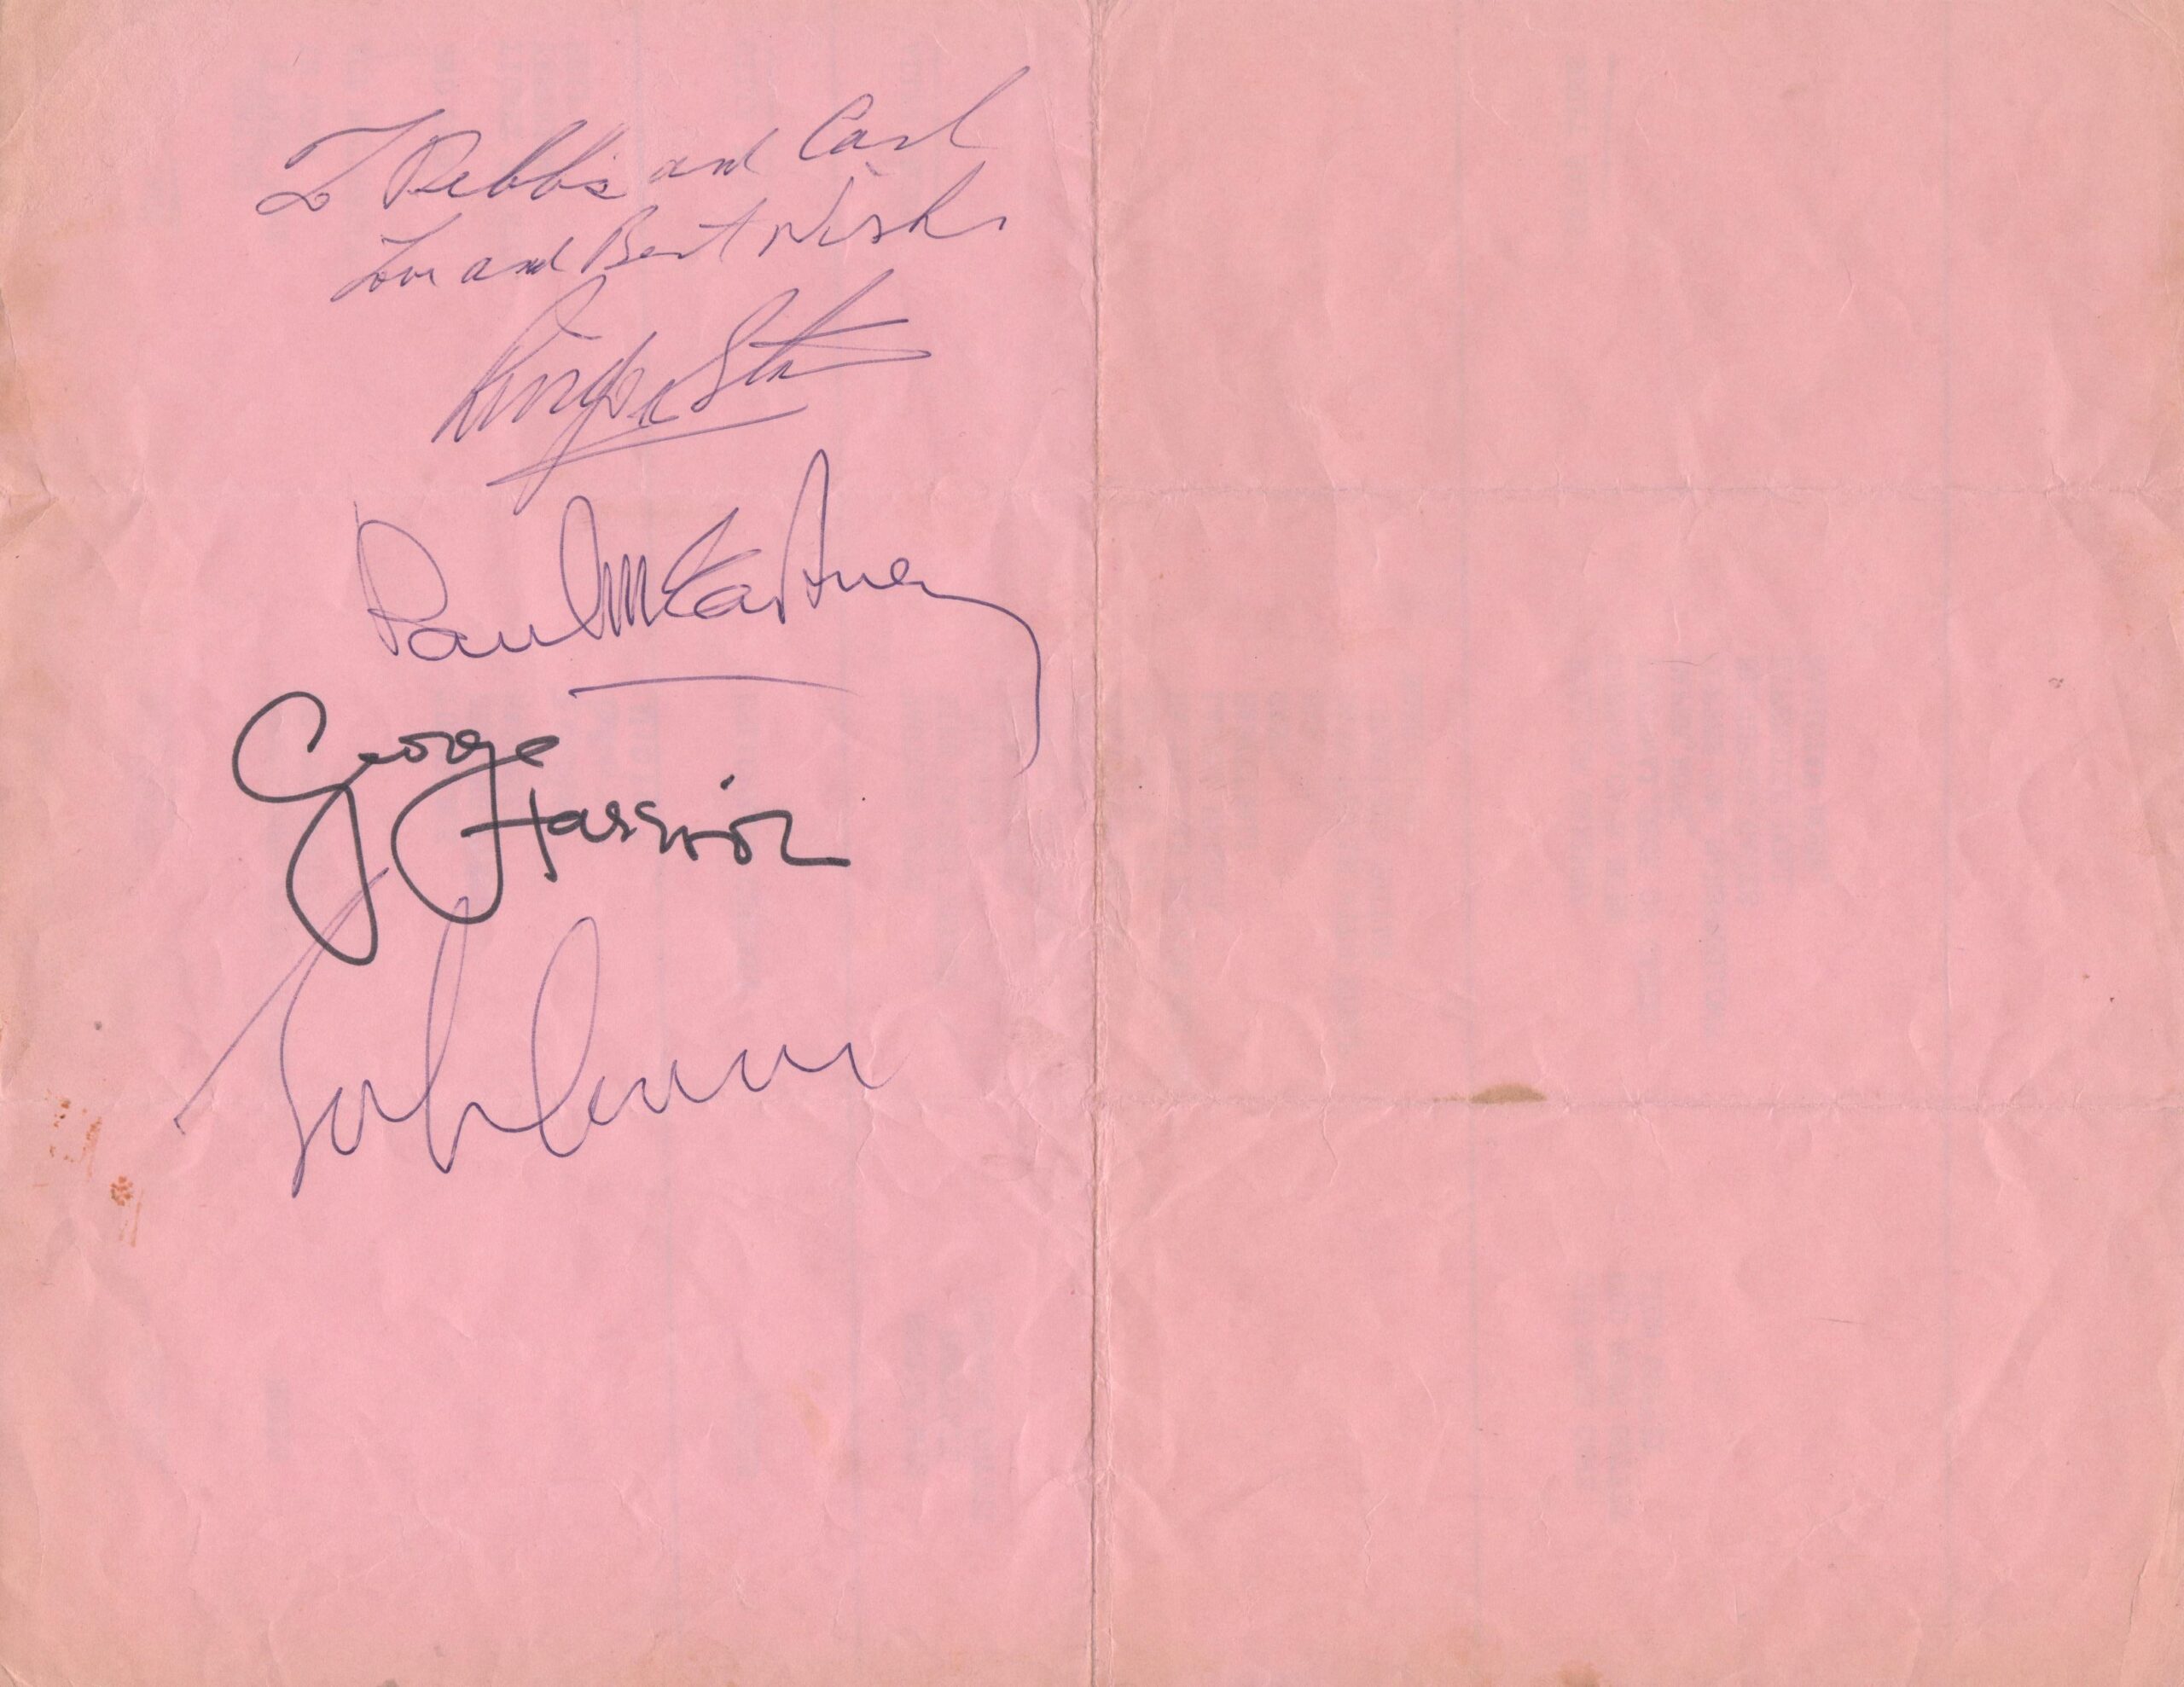 To Debbie and Carl
Love and Best Wishes
Ringo Starr
Paul McCartney
George Harrison
John Lennon